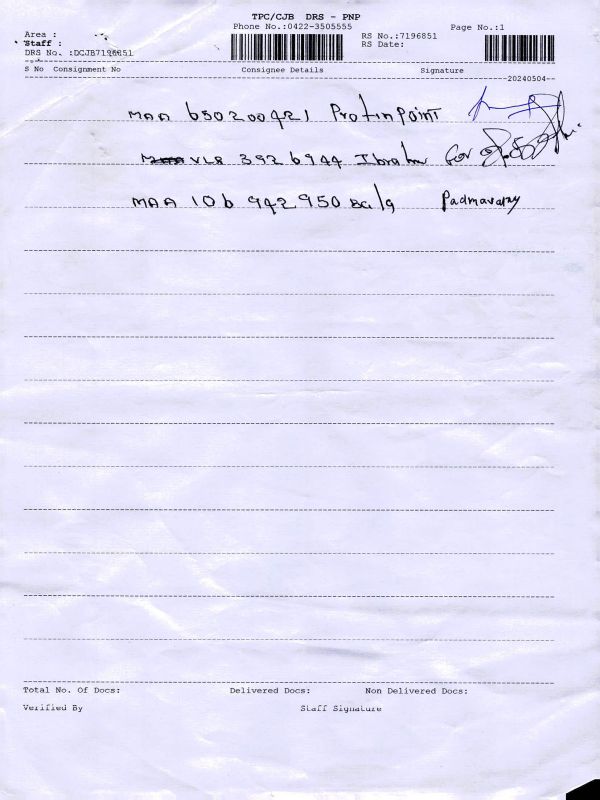 TPC/CJB DRS - PNP
Phone No.:0422-3505555 Page No.:1
Area : RS No.:7196851
Staff : RS Date:
DRS No. :DCJB7196851
S No Consignment No Consignee Details Signature
20240504
MAA 650200421 Protinpoint
VLR 3926944 Ibrahim for
MAA 106942950 Balg Padmavathy
Total No. Of Docs: Delivered Docs: Non Delivered Docs:
Verified By Staff Signature